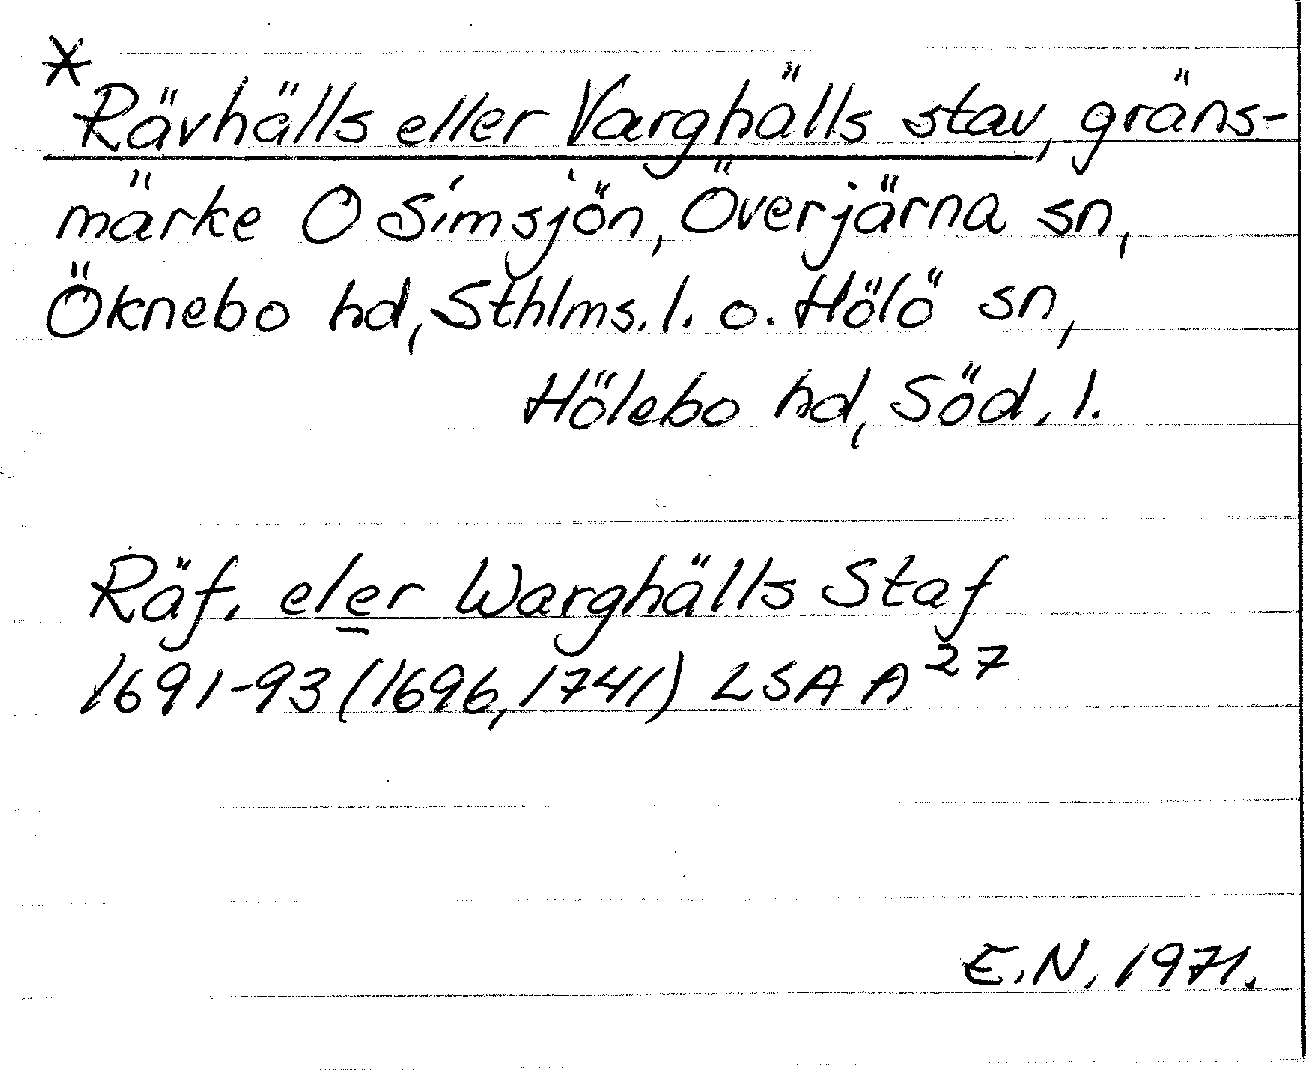 * Rävhälls eller Varghälls stav, gräns-
märke O Simsjön, Överjärna sn,
Öknebo hd, Sthlms. l. o. Hölö sn,
Hölebo hd, Söd. l.
Räf. eler Warghälls Staf
1691-93 (1696, 1741) LSA A 27
E.N. 1971.